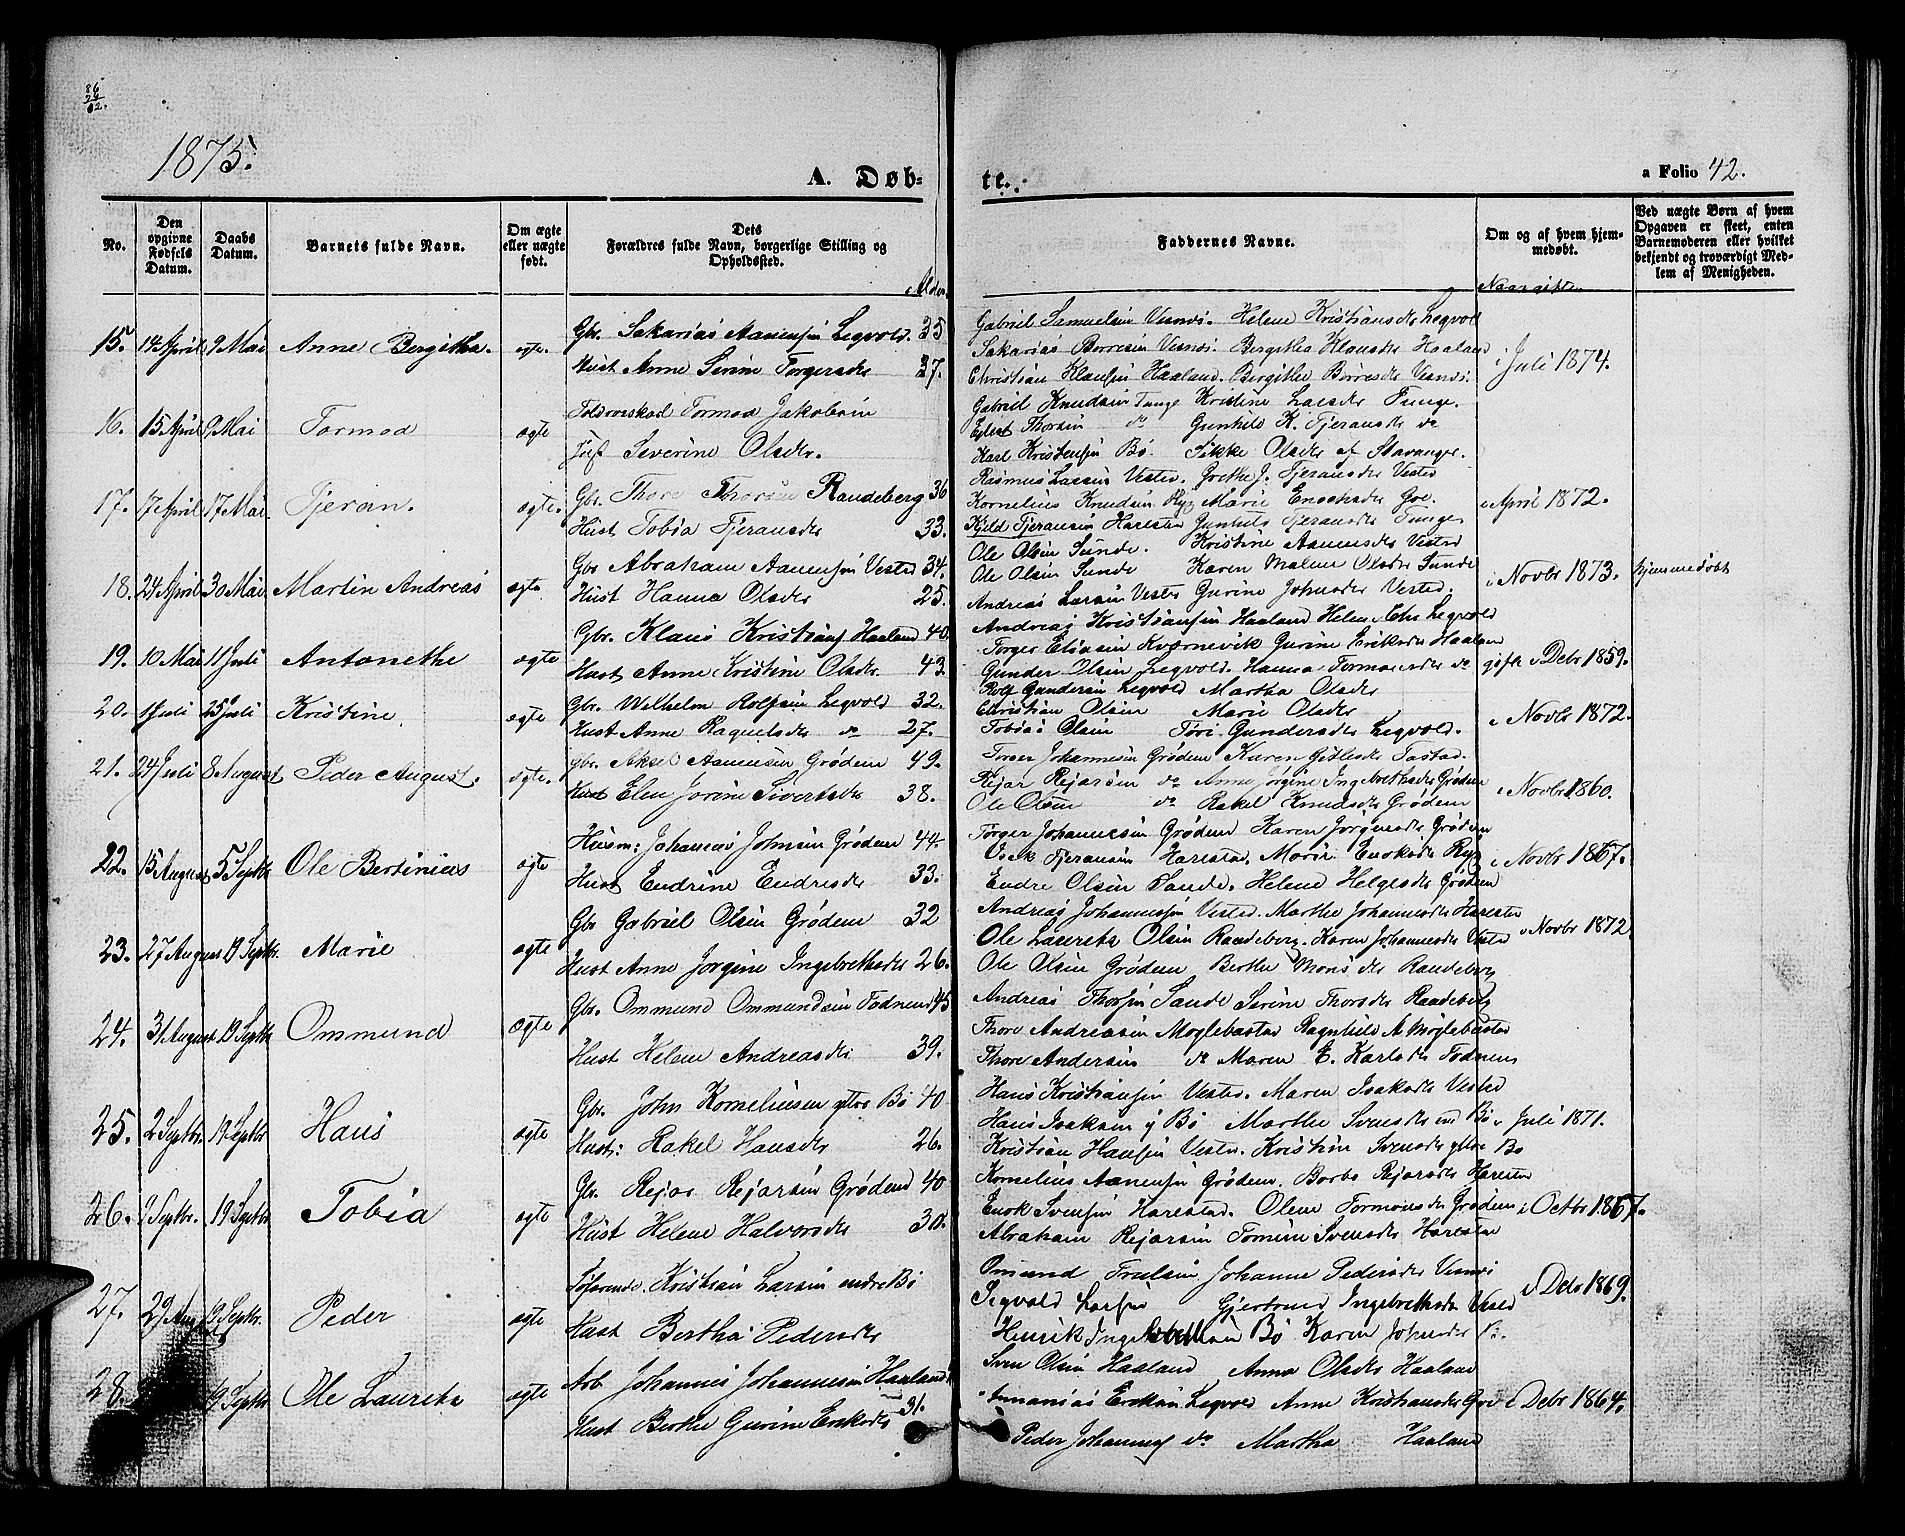 1875.
A. Døb-
te.
a Folio 42.
No.
Den opgivne Fødsels Datum.
Daabs Datum.
Barnets fulde Navn.
Om ægte eller uægte født.
Dets Forældres fulde Navn, borgerlige Stilling og Opholdssted.
Alder.
Faddernes Navne.
Om og af hvem hjemmedøbt.
Naar gifte
Ved uægte Børn af hvem Opgaven er skeet, enten Barnemoderen eller hvilket bekjendt og troværdigt Medlem af Menigheden.
15. 14 April 9 Mai Anne Bergitha. ægte.
Gbr. Sakarias Aanensen Legvold. 35
Hust Anne Serine Torgersdr 37.
Gabriel Samuelsen Visnæs. Helene Kristiansdr Legvol
Sakarias Borresen Visnæs. Bergitha Klausdr Haaland
Christian Klausen Haaland. Bergithe Borresdr Visnæs.
i Juli 1874.
16. 15 April 9 Mai Tormod ægte
Toldroerskarl Tormod Jakobsen
Severine Olsdr.
Gabriel Knudsen Tunge Kristine Larsdr Tunge.
Eylert Thorsen do Gunhild K. Tjeransdr do
Karl Kristensen Bø. Sikke Olsdr af Stavanger.
17. 17 April 17 Mai Tjeran. ægte.
Gbr. Thore Thorsen Randeberg 36
Hust Tobia Tjeransdr 33.
Rasmus Larsen Vested. Grethe J. Tjeransdr Vested
Kornelius Knudsen Ryg Marie Enochsdr Goe.
Kjeld Tjeransen Harestad Gunhild Tjeransdr Tunge
i April 1872.
18. 24 April 30 Mai Martin Andreas ægte
Gbr Abraham Aanensen Vested 34.
Hust Hanna Olsdr 25.
Ole Olsen Sunde. Kristine Aanensdr Vested
Ole Olsen Sunde Karen Malene Olsdr Sunde
Andreas Larsen Vested Gurine Johnsdr Vested.
i Novbr 1873. hjemmedøbt
19. 10 Mai 11 Juli Antonethe ægte
Gbr. Klaus Kristians Haaland 40.
Hust Anne Kristine Olsdr 43.
Andreas Kristiansen Haaland Helene Chr. Legvold
Torger Eliasen Kvernevik Gurine Eriksdr Haaland
Gunder Olsen Legvold. Hanna Tormodsdr do
gift i Debr 1859.
20. 1 Juli 25 Juli Kristine ægte
Gbr. Wilhelm Rolfsen Legvold 32.
Hust Anne Raquelsdr do 27.
Rolf Gundersen Legvold Martha Olsdr
Christian Olsen Marie Olsdr
Tobias Olsen Tøri Gundersdr Legvold.
i Novbr 1872.
21. 24 Juli 8 August Peder August. ægte.
Gbr. Aksel Aanensen Grødem 49.
Hust Elen Jorine Sivertsdr 38.
Torger Johannesen Grødem Karen Gitlesdr Tastad.
Rejar Rejarsen do Anne Jørgine Ingebrethsdr Grødem
Ole Olsen do Rakel Knudsdr Grødem
i Novbr 1860.
22. 15 August 5 Septbr Ole Bertinius ægte
Huusm: Johannes Johnsen Grødem 44.
Hust Endrine Endresdr 33.
Torger Johannesen Grødem Karen Jørgensdr Grødem
Tjeransen Harestad. Marie Enoksdr Ryg
Endre Olsen Sande. Helene Helgesdr Grødem
i Novbr 1867.
23. 27 August 19 Septbr. Marie ægte
Gbr Gabriel Olsen Grødem 32
Hust Anne Jorgine Ingebrethsdr 26.
Andreas Johannessen Vested. Marthe Johannesdr Harestad
Ole Lauretz Olsen Randeberg. Karen Johannesdr Vested
Ole Olsen Grødem Berthe Monsdr Randeberg
i Novbr 1872
24. 31 August 19 Septbr Ommund ægte
Gbr. Ommund Ommundsen Todnem 45
Hust Helene Andreasdr 39.
Andreas Thorsen Sande Serine Thorsdr Randeberg
Thore Andreasen Moglebostad Ragnhild A. Møglebostad
Thore Andersen do Maren E. Karlsdr Todnem
25. 2 Septbr. 19 Septbr Hans ægte
Gbr. John Korneliusen ytre Bø 40
Hust: Rakel Hansdr 26.
Hans Kristiansen Vested. Maren Isaksdr Vested
Hans Isaksen y Bø Marthe Svensdr Bø
Kristian Hansen Vested. Kristine Svensdr ytre Bø
i Juli 1871.
26. 9 Septbr. 19 Septbr. Tobia ægte
Gbr. Rejar Rejarsen Grødem 40
Hust Helene Halvorsdr 30.
Kornelius Aanensen Grødem. Borbo Rejarsdr Harestad
Enok Svensen Harestad. Olene Tormodsdr Grødem
Abraham Rejarsen Tomine Svensdr Harestad
i Octbr 1867.
27. 29 Aug 19 Septbr. Peder ægte
Søfarende. Kristian Larsen indre Bø
Hust Bertha Pedersdr
Omund Trulsen Johanne Pedersdr Visnæs
Segvald Larsen Gjertrud Ingebrethsdr Vested
Henrik Ingebrethsen Bø Karen Johnsdr
i Debr 1869.
28. 19 Septbr Ole Lauretz ægte
Arb. Johannes Johannesen Haaland
Hust Berthe Gurine Eriksdr 31.
Sven Olsen Haaland Anna Olsdr Haaland
Eriksen Legvold Anne Kristiansdr Goe
Peder Johannes do Martha Haaland
i Debr 1864.